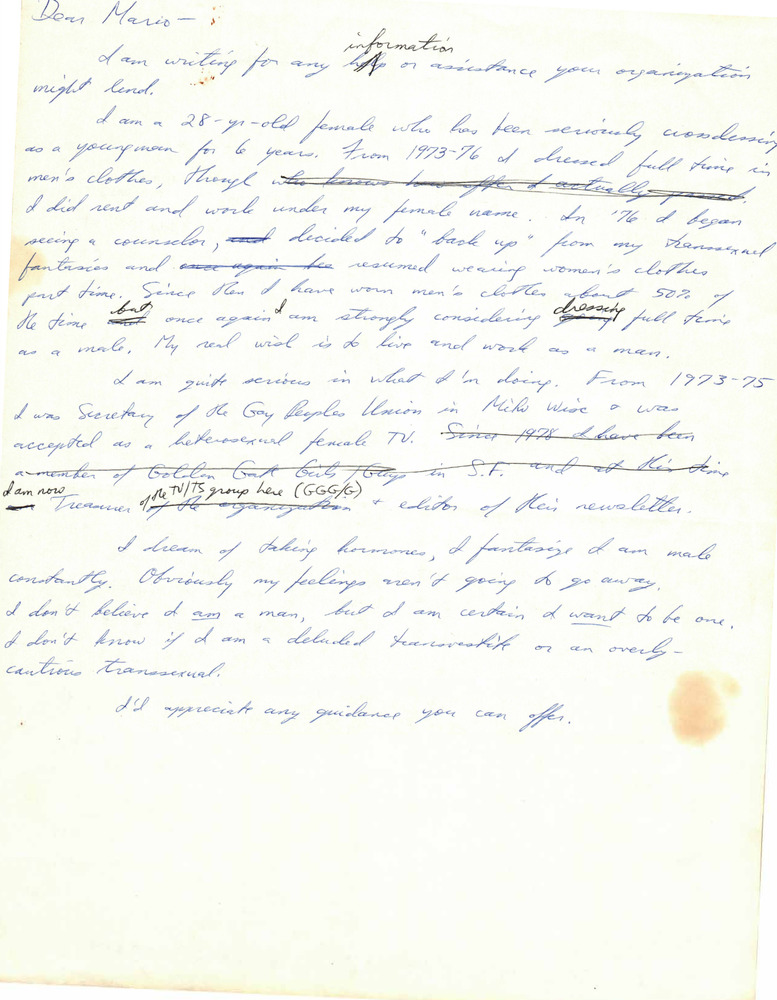 Dear Mario –
information
I am writing for any help or assistance your organization
might lend.
I am a 28-yr-old female who has been seriously crossdressing
as a young man for 6 years. From 1973-76 I dressed full time in
men's clothes, though who knows how often I actually passed.
I did rent and work under my female name. In '76 I began
seeing a counselor, and decided to "back up" from my transsexual
fantasies and once again resumed wearing women's clothes
part time. Since then I have worn men's clothes about 50% of
but I dressing
the time once again am strongly considering full time
as a male. My real wish is to live and work as a man.
I am quite serious in what I'm doing. From 1973-75
I was Secretary of the Gay Peoples Union in Milw Wisc & was
accepted as a heterosexual female TV. Since 1978 I have been
a member of Golden Gate Girls/Guys in S.F. and at this time
I am now of the TV/TS group here (GGG/G)
Treasurer of the organization + editor of their newsletter.
I dream of taking hormones, I fantasize I am male
constantly. Obviously my feelings aren't going to go away.
I don't believe I am a man, but I am certain I want to be one.
I don't know if I am a deluded transvestite or an overly-
cautious transsexual.
I'd appreciate any guidance you can offer.